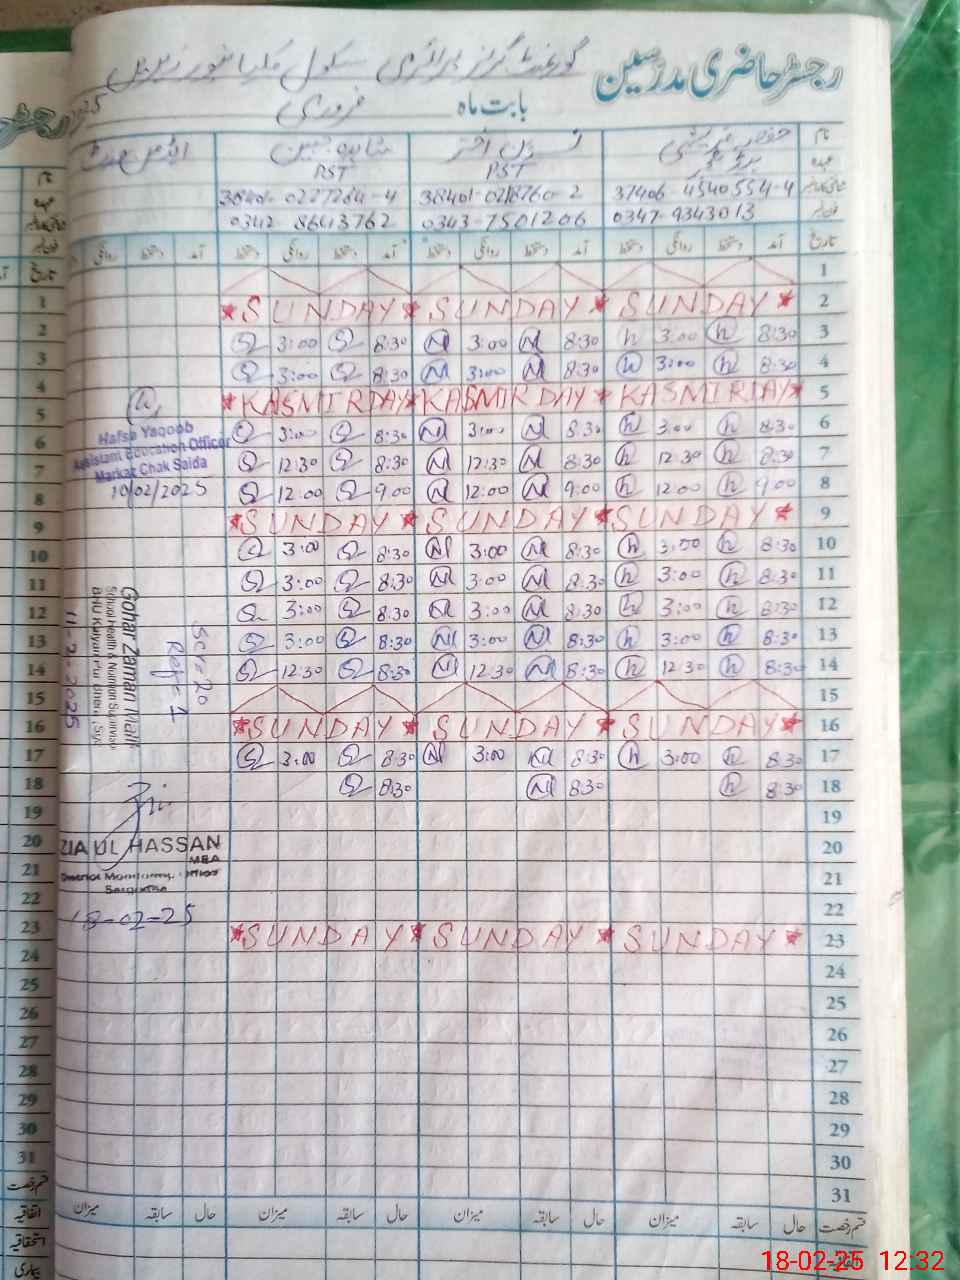 رجسٹر حاضری مدرسین
گورنمنٹ گرلز پرائمری سکول
بابت ماہ فروری
نام
عہدہ PST PST
37406-4540554-4 38401-0218760-2 38401-0227264-4
فون نمبر 0347-9343013 0343-7501206 0342-8643762
تاریخ آمد دستخط روانگی دستخط آمد دستخط روانگی دستخط آمد دستخط روانگی دستخط آمد دستخط روانگی
1
★ SUNDAY ★ SUNDAY ★ SUNDAY ★ 2
3:00 8:30 3:00 8:30 3:00 8:30 3
3:00 8:30 3:00 8:30 3:00 8:30 4
★ KASMIR DAY ★ KASMIR DAY ★ KASMIR DAY ★ 5
3:00 8:30 3:00 8:30 3:00 8:30 6
12:30 8:30 12:30 8:30 12:30 8:30 7
12:00 9:00 12:00 9:00 12:00 9:00 8
★ SUNDAY ★ SUNDAY ★ SUNDAY ★ 9
3:00 8:30 3:00 8:30 3:00 8:30 10
3:00 8:30 3:00 8:30 3:00 8:30 11
3:00 8:30 3:00 8:30 3:00 8:30 12
3:00 8:30 3:00 8:30 3:00 8:30 13
12:30 8:30 12:30 8:30 12:30 8:30 14
15
★ SUNDAY ★ SUNDAY ★ SUNDAY ★ 16
3:00 8:30 3:00 8:30 3:00 8:30 17
8:30 8:30 8:30 18
19
20
21
22
★ SUNDAY ★ SUNDAY ★ SUNDAY ★ 23
24
25
26
27
28
29
30
31
قسم رخصت حال سابقہ میزان حال سابقہ میزان حال سابقہ میزان حال سابقہ میزان
اتفاقیہ
Hafsa Yaqoob
Assistant Education Officer
Markaz Chak Saida
10/02/2025
Gohar Zaman Malik
School Health & Nutrition Supervisor
11-2-2025
ZIA UL HASSAN
MBA
District Monitoring Officer
Sargodha
18-02-25
رجسٹر
نام
عہدہ
فون نمبر
تاریخ
1
2
3
4
5
6
7
8
9
10
11
12
13
14
15
16
17
18
19
20
21
22
23
24
25
26
27
28
29
30
31
قسم رخصت
اتفاقیہ
استحقاقیہ
بیماری
18-02-25 12:32